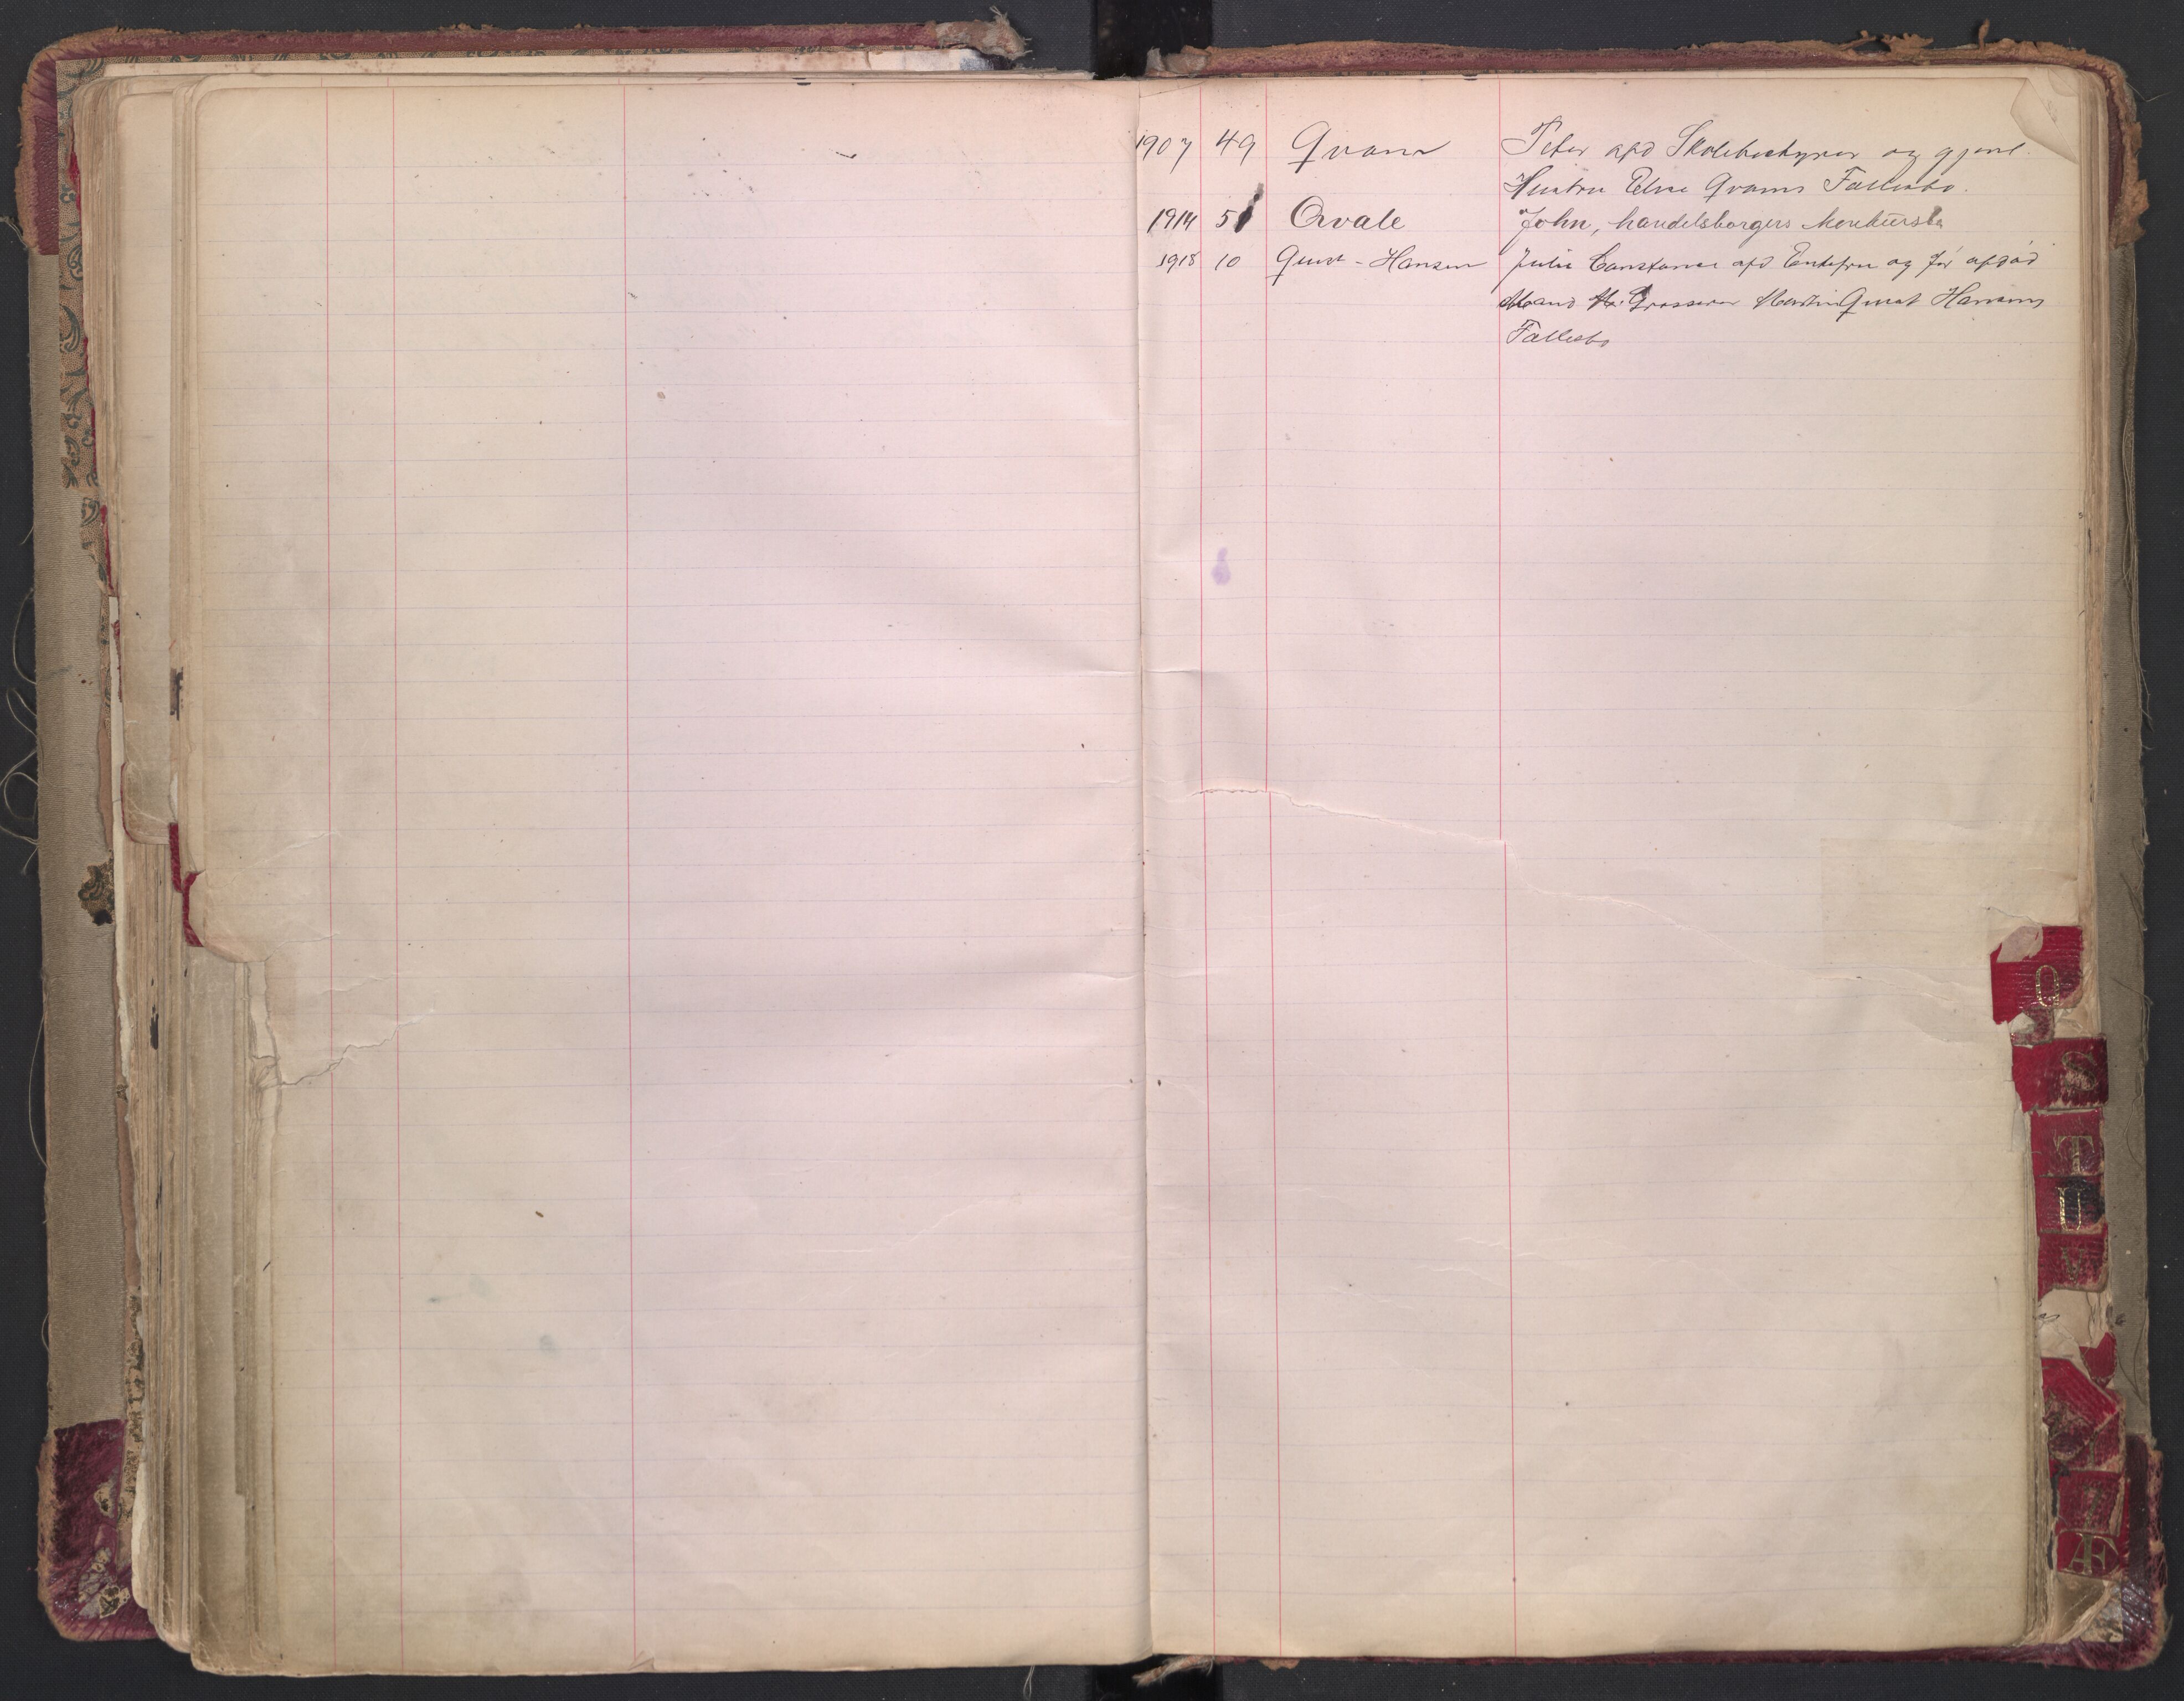 1907 49 Qvam Peter afd Skolebestyrer og gjenl.
Hustru Elise Qvams Fællesbo.
1914 51 Qvale John, handelsborgers konkursbo
1918 10 Quist-Hansen Julie Constance afd Enkefru og før afdød
Mand Grosserer Martin Quist Hansens
Fællesbo
Q
S
T
U
V
Æ